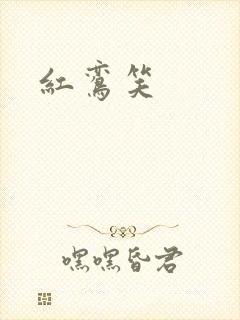 紅鸞笑
嘿嘿昏君